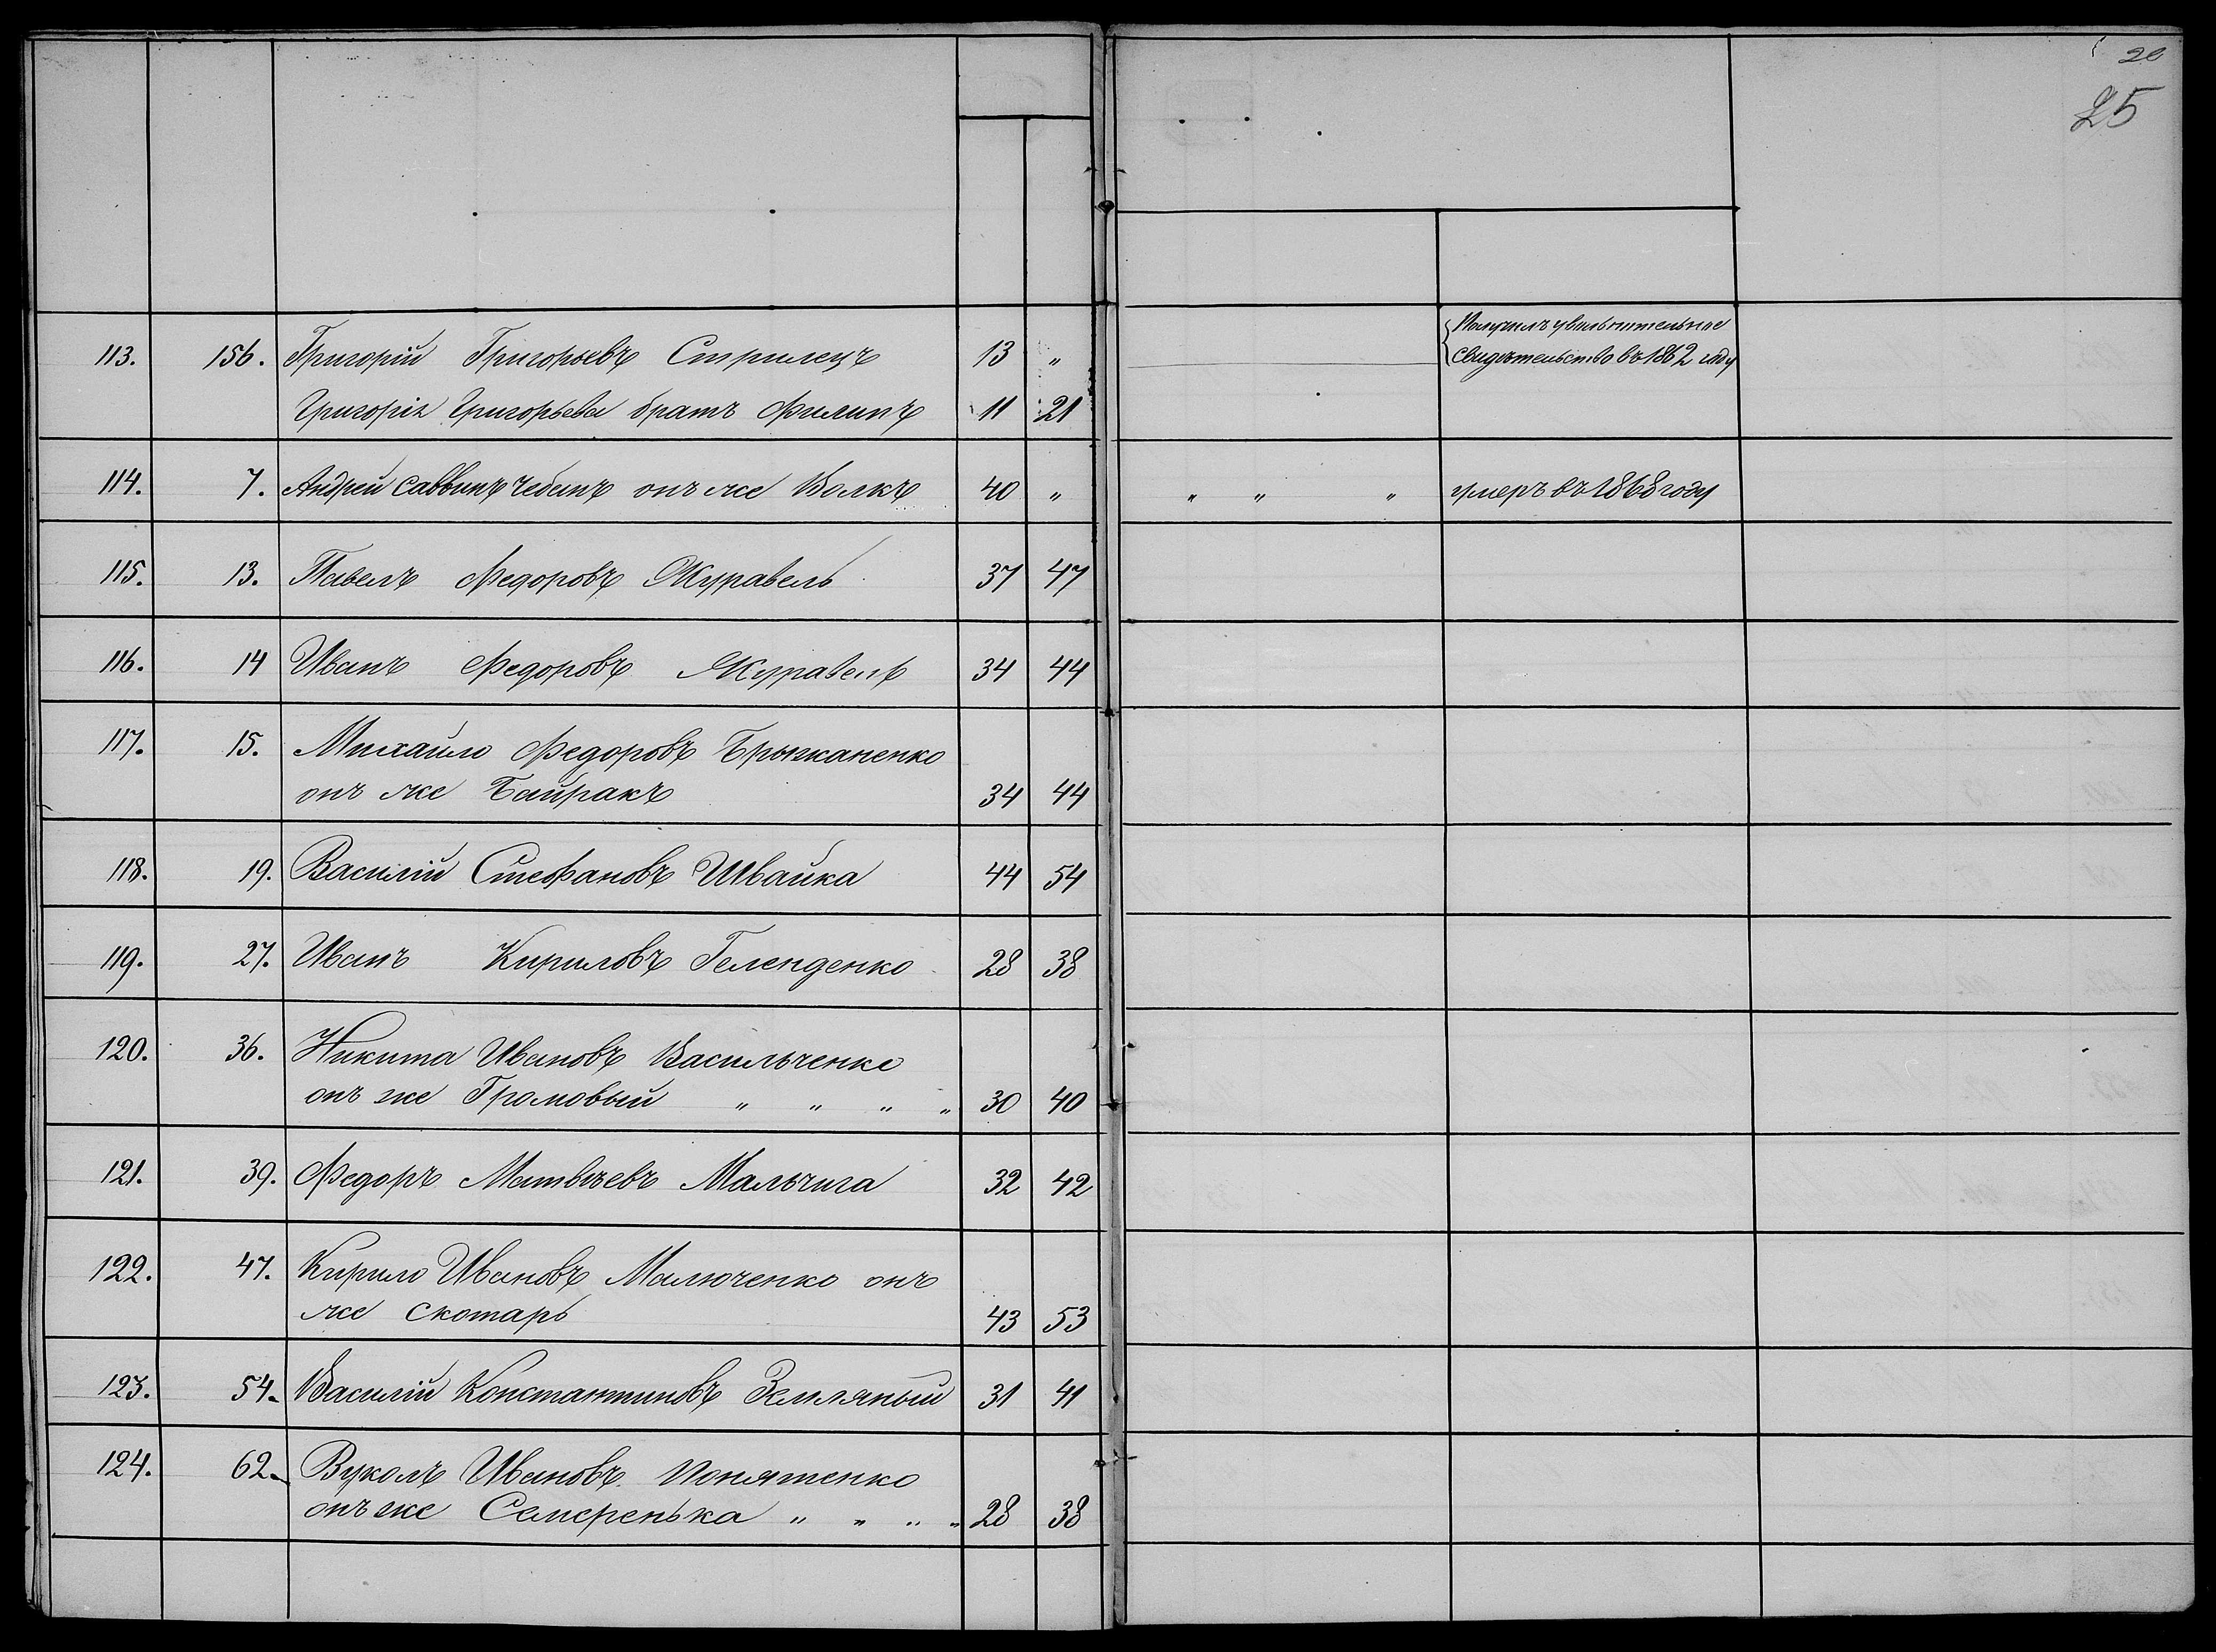 20
25
113. 156. Григорій Григорьевъ Стрилецъ 13 " Получилъ увольнительное
свидѣтельство въ 1862 году
Григорія Григорьева братъ Филипъ 11 21
114. 7. Андрей Саввинъ Чебанъ онъ же Волкъ 40 " " " " умеръ въ 1868 году
115. 13. Павелъ Федоровъ Журавель 37 47
116. 14 Иванъ Федоровъ Журавель 34 44
117. 15. Михайло Федоровъ Брыжаненко
онъ же Байракъ 34 44
118. 19. Василій Стефановъ Швайка 44 54
119. 27. Иванъ Кириловъ Геленденко 28 38
120. 36. Никита Ивановъ Васильченко
онъ же Громовый " " " " 30 40
121. 39. Федоръ Матвѣевъ Мальчига 32 42
122. 47. Кирило Ивановъ Малюченко онъ
же Скотарь 43 53
123. 54. Василій Константиновъ Земляный 31 41
124. 62. Вуколъ Ивановъ Понятенко
онъ же Семеренька " " " " 28 38